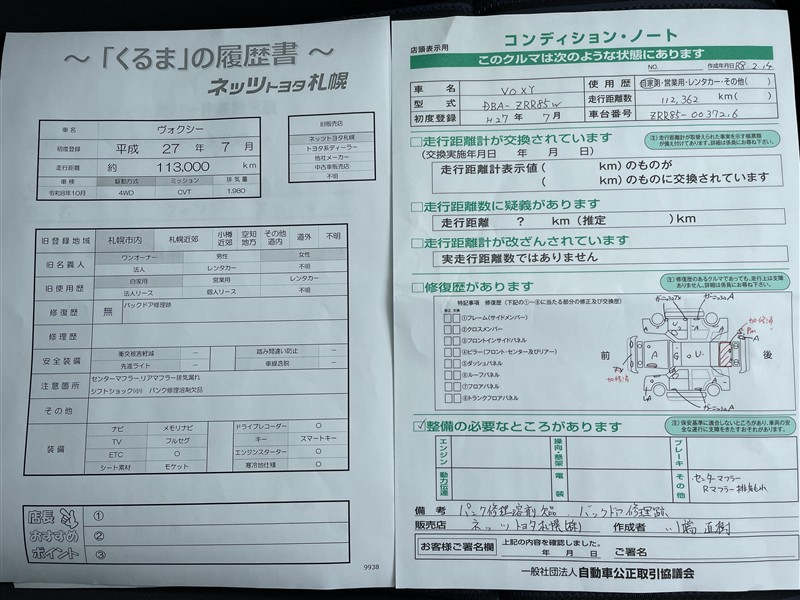 ～「くるま」の履歴書～
ネッツトヨタ札幌
車名 ヴォクシー
初度登録 平成 27 年 7 月
走行距離 約 113,000 km
車検 駆動方式 ミッション 排気量
令和8年10月 4WD CVT 1,980
旧販売店
ネッツトヨタ札幌
トヨタ系ディーラー
他社メーカー
中古車販売店
不明
旧登録地域 札幌市内 札幌近郊 小樽近郊 空知地方 その他道内 道外 不明
旧名義人 ワンオーナー 男性 女性
法人 レンタカー 不明
旧使用歴 自家用 営業用 レンタカー
法人リース 個人リース 不明
修復歴 無 バックドア修理跡
修理歴
安全装備 衝突被害軽減 － 踏み間違い防止 －
先進ライト － 車線逸脱 －
注意箇所 センターマフラー・リアマフラー排気漏れ
シフトショック(小) パンク修理溶剤欠品
その他
装備 ナビ メモリナビ ドライブレコーダー ○
TV フルセグ キー スマートキー
ETC ○ エンジンスターター ○
シート素材 モケット 寒冷地仕様 ○
店長おすすめポイント
①
②
③
9938
店頭表示用
コンディション・ノート
このクルマは次のような状態にあります
NO. 作成年月日 R8.2.14
車名 VOXY 使用歴 自家用・営業用・レンタカー・その他( )
型式 DBA-ZRR85W 走行距離数 112,362 km( )
初度登録 H27年 7月 車台番号 ZRR85-0037216
□走行距離計が交換されています
注)走行距離計が取替えられた事実を示す帳票類が備え付けてあります。詳細は係員にお尋ね下さい。
(交換実施年月日 年 月 日)
走行距離計表示値( km)のものが
( km)のものに交換されています
□走行距離数に疑義があります
走行距離 ? km(推定 )km
□走行距離計が改ざんされています
実走行距離数ではありません
□修復歴があります
注)修復歴のあるクルマであっても、走行上は支障ありません。詳細は係員にお尋ね下さい。
特記事項 修復歴(下記の①～⑧に当たる部分の修正及び交換歴)
修正 交換
①フレーム(サイドメンバー)
②クロスメンバー
③フロントインサイドパネル
④ピラー(フロント・センター及びリアー)
⑤ダッシュパネル
⑥ルーフパネル
⑦フロアパネル
⑧トランクフロアパネル
前
後
☑整備の必要なところがあります
注)保安基準に適合しないところがあり、車両の安全な運行に支障をきたすおそれがあります。
エンジン 操向・懸架 ブレーキ
動力伝達 電装 その他
センターマフラー
Rマフラー排気もれ
備考 パンク修理溶剤欠品、バックドア修理跡
販売店 ネッツトヨタ札幌(株) 作成者
お客様ご署名欄 上記の内容を確認しました。
年 月 日 ご署名
一般社団法人 自動車公正取引協議会